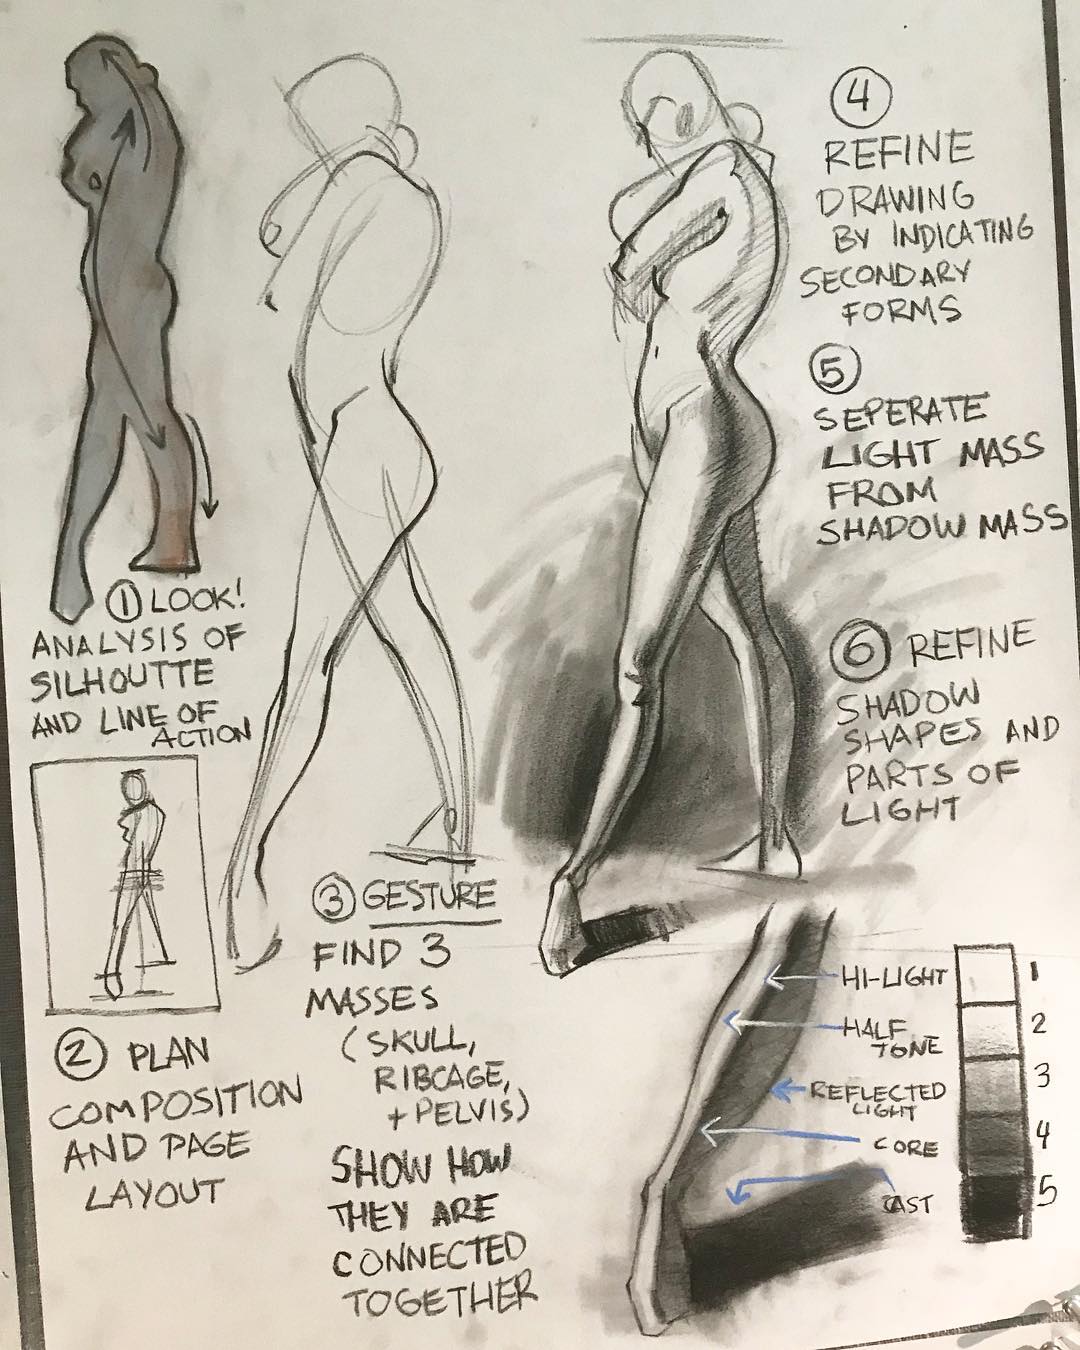 ① LOOK!
ANALYSIS OF
SILHOUTTE
AND LINE OF
ACTION
② PLAN
COMPOSITION
AND PAGE
LAYOUT
③ GESTURE
FIND 3
MASSES
(SKULL,
RIBCAGE,
+ PELVIS)
SHOW HOW
THEY ARE
CONNECTED
TOGETHER
④
REFINE
DRAWING
BY INDICATING
SECONDARY
FORMS
⑤
SEPERATE
LIGHT MASS
FROM
SHADOW MASS
⑥ REFINE
SHADOW
SHAPES AND
PARTS OF
LIGHT
HI-LIGHT
HALF
TONE
REFLECTED
LIGHT
CORE
CAST
1
2
3
4
5